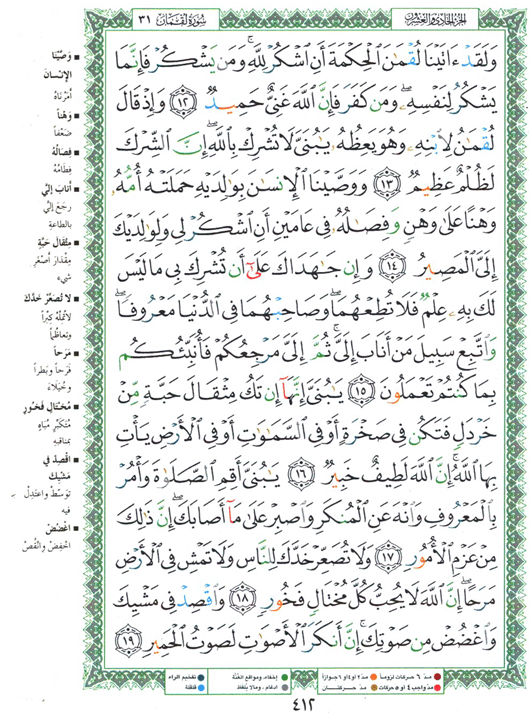 الجزء الحادي والعشرون
سورة لقمان ٣١
وَلَقَدْ ءَاتَيْنَا لُقْمَٰنَ ٱلْحِكْمَةَ أَنِ ٱشْكُرْ لِلَّهِ ۚ وَمَن يَشْكُرْ فَإِنَّمَا
يَشْكُرُ لِنَفْسِهِۦ ۖ وَمَن كَفَرَ فَإِنَّ ٱللَّهَ غَنِىٌّ حَمِيدٌ ١٢ وَإِذْ قَالَ
لُقْمَٰنُ لِٱبْنِهِۦ وَهُوَ يَعِظُهُۥ يَٰبُنَىَّ لَا تُشْرِكْ بِٱللَّهِ ۖ إِنَّ ٱلشِّرْكَ
لَظُلْمٌ عَظِيمٌ ١٣ وَوَصَّيْنَا ٱلْإِنسَٰنَ بِوَٰلِدَيْهِ حَمَلَتْهُ أُمُّهُۥ
وَهْنًا عَلَىٰ وَهْنٍ وَفِصَٰلُهُۥ فِى عَامَيْنِ أَنِ ٱشْكُرْ لِى وَلِوَٰلِدَيْكَ
إِلَىَّ ٱلْمَصِيرُ ١٤ وَإِن جَٰهَدَاكَ عَلَىٰٓ أَن تُشْرِكَ بِى مَا لَيْسَ
لَكَ بِهِۦ عِلْمٌ فَلَا تُطِعْهُمَا ۖ وَصَاحِبْهُمَا فِى ٱلدُّنْيَا مَعْرُوفًا ۖ
وَٱتَّبِعْ سَبِيلَ مَنْ أَنَابَ إِلَىَّ ۚ ثُمَّ إِلَىَّ مَرْجِعُكُمْ فَأُنَبِّئُكُم
بِمَا كُنتُمْ تَعْمَلُونَ ١٥ يَٰبُنَىَّ إِنَّهَآ إِن تَكُ مِثْقَالَ حَبَّةٍ مِّنْ
خَرْدَلٍ فَتَكُن فِى صَخْرَةٍ أَوْ فِى ٱلسَّمَٰوَٰتِ أَوْ فِى ٱلْأَرْضِ يَأْتِ
بِهَا ٱللَّهُ ۚ إِنَّ ٱللَّهَ لَطِيفٌ خَبِيرٌ ١٦ يَٰبُنَىَّ أَقِمِ ٱلصَّلَوٰةَ وَأْمُرْ
بِٱلْمَعْرُوفِ وَٱنْهَ عَنِ ٱلْمُنكَرِ وَٱصْبِرْ عَلَىٰ مَآ أَصَابَكَ ۖ إِنَّ ذَٰلِكَ
مِنْ عَزْمِ ٱلْأُمُورِ ١٧ وَلَا تُصَعِّرْ خَدَّكَ لِلنَّاسِ وَلَا تَمْشِ فِى ٱلْأَرْضِ
مَرَحًا ۖ إِنَّ ٱللَّهَ لَا يُحِبُّ كُلَّ مُخْتَالٍ فَخُورٍ ١٨ وَٱقْصِدْ فِى مَشْيِكَ
وَٱغْضُضْ مِن صَوْتِكَ ۚ إِنَّ أَنكَرَ ٱلْأَصْوَٰتِ لَصَوْتُ ٱلْحَمِيرِ ١٩
■ وَصَّيْنَا
الإنْسَانَ
أَمَرْنَاهُ
■ وَهْناً
ضَعْفاً
■ فِصَالُهُ
فِطَامُهُ
■ أَنَابَ إِلَيَّ
رَجَعَ إِلَيَّ
بِالطَّاعَةِ
■ مِثْقَالَ حَبَّةٍ
مِقْدَارَ أَصْغَرِ
شيء
■ لا تُصَعِّرْ خَدَّكَ
لا تُمِلْهُ كِبْراً
وتَعاظُماً
■ مَرَحاً
فَرَحاً وبَطَراً
وخُيَلاءَ
■ مُخْتَالٍ فَخُورٍ
مُتَكَبِّرٍ مُبَاهٍ
بمناقبه
■ اقْصِدْ في
مَشْيِكَ
تَوَسَّطْ واعتدِلْ
فيه
■ اغْضُضْ
اخفِضْ وانْقُصْ
مدّ ٦ حركات لزوماً مدّ ٢ أو ٤ أو ٦ جوازاً
مدّ واجب ٤ أو ٥ حركات مدّ حركتان
إخفاء، ومواقع الغنّة
إدغام، وما لا يُلفظ
تفخيم الراء
قلقلة
٤١٢